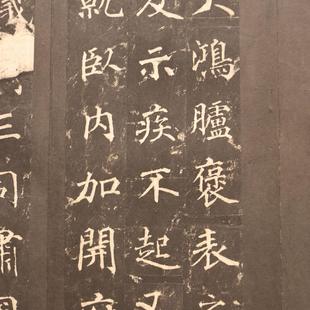 鴻臚褒表
示疾不起又
就臥内加開
三司